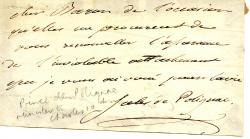 cher Baron de l'occasion
qu'elles me procurent de
vous renouveller l'assurance
de l'inviolable attachement
que je vous ai voué pour la vie
Jules de Polignac
Prince Jules Polignac
minister to
Charles 10